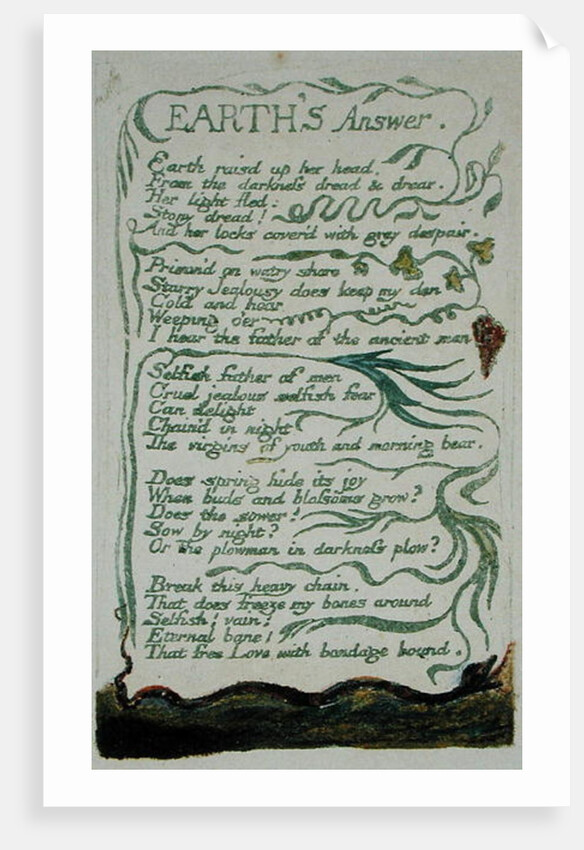 EARTH'S Answer.
Earth raisd up her head,
From the darkness dread & drear.
Her light fled:
Stony dread!
And her locks cover'd with grey despair.
Prison'd on watry shore
Starry Jealousy does keep my den
Cold and hoar
Weeping o'er
I hear the father of the ancient men
Selfish father of men
Cruel jealous selfish fear
Can delight
Chain'd in night
The virgins of youth and morning bear.
Does spring hide its joy
When buds and blossoms grow?
Does the sower!
Sow by night?
Or the plowman in darkness plow?
Break this heavy chain.
That does freeze my bones around
Selfish! vain!
Eternal bane!
That free Love with bondage bound.